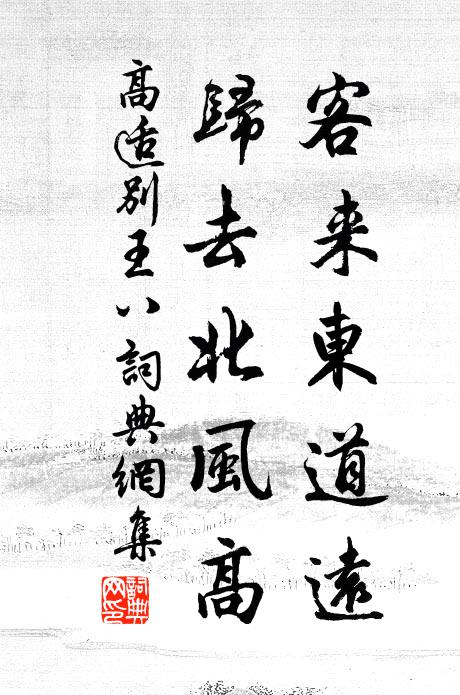 客来東道遠
歸去北風高
高適別王八詞典網集
詞典网印